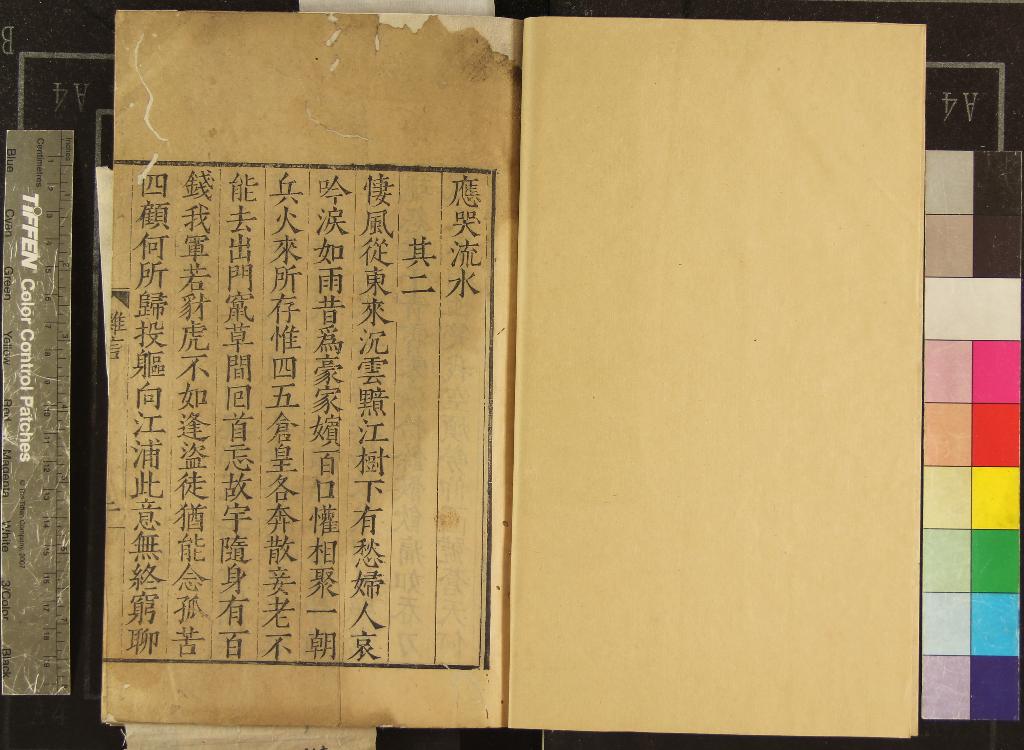 應哭流水
其二
悽風從東來沉雲黯江樹下有愁婦人哀
吟淚如雨昔爲豪家嬪百口懽相聚一朝
兵火來所存惟四五倉皇各奔散妾老不
能去出門竄草間回首忘故宇隨身有百
錢我軍若豺虎不如逢盜徒猶能念孤苦
四顧何所歸投軀向江浦此意無終窮聊
A4
A4
B
inches
Centimetres
TIFFEN Color Control Patches
© The Tiffen Company, 2007
Blue
Cyan
Green
Yellow
Red
Magenta
White
3/Color
Black